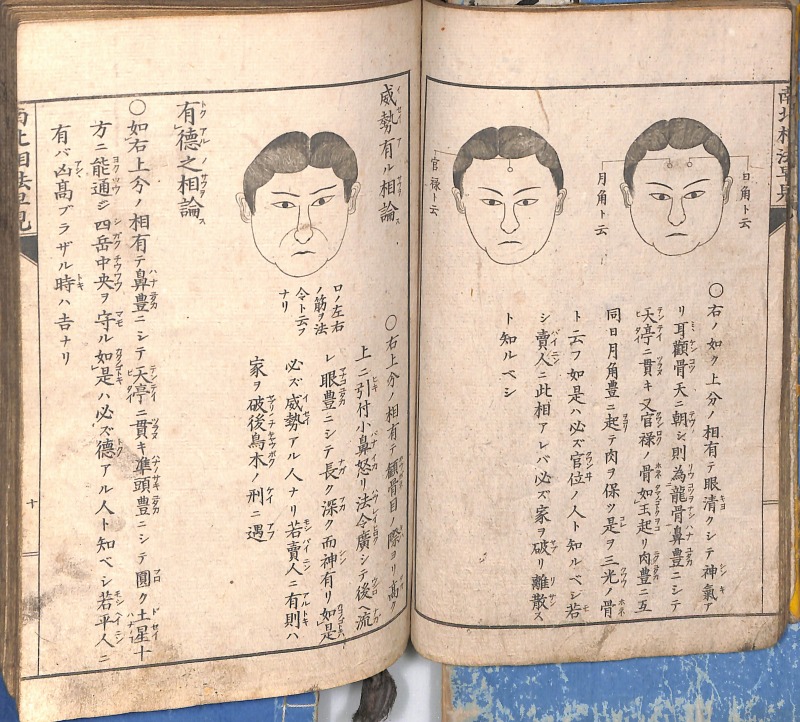 日角ト云
月角ト云
官禄ト云
○右ノ如ク上分ノ相有テ眼清クシテ神氣ア
リ耳顴骨天ニ朝シ則為龍骨鼻豊ニシテ
天亭ニ貫キ又官禄ノ骨如玉起リ肉豊ニ五
同日月角豊ニ起テ肉ヲ保ツ是ヲ三光ノ骨
ト云フ如是ハ必ズ官位ノ人ト知ルベシ若
シ賣人ニ此相アレバ必ズ家ヲ破リ離散ス
ト知ルベシ
威勢有ル相論
○右上分ノ相有テ顴骨目ノ際ヨリ高ク
上ニ引付小鼻怒リ法令廣シテ後ヘ流
レ眼豊ニシテ長ク深ク而神有リ如是
必ズ威勢アル人ナリ若賣人ニ有則ハ
家ヲ破後鳥木ノ刑ニ遇
口ノ左右
ノ筋ヲ法
令ト云フ
ナリ
有德之相論
○如右上分ノ相有テ鼻豊ニシテ天亭ニ貫キ凖頭豊ニシテ圓ク土星十
方ニ能通ジ四岳中央ヲ守ル如是ハ必ズ德アル人ト知ベシ若平人ニ
有バ凶髙ブラザル時ハ吉ナリ
十